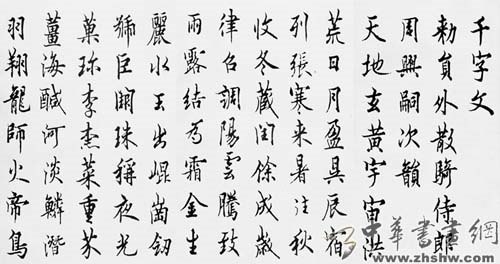 千字文
勅員外散騎侍郎
周興嗣次韻
天地玄黃宇宙洪
荒日月盈昃辰宿
列張寒来暑往秋
收冬藏閏餘成歲
律召調陽雲騰致
雨露結為霜金生
麗水玉出崐崗釼
號巨闕珠稱夜光
菓珎李柰菜重芥
薑海醎河淡鱗潛
羽翔龍師火帝鳥
中華書畫網
www.zhshw.com